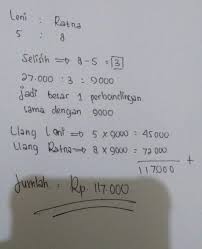 Leni : Ratna
5 : 8
Selisih => 8-5 = 3
27.000 : 3 = 9000
jadi besar 1 perbandingan
sama dengan 9000
Uang Leni => 5 x 9000 = 45000
Uang Ratna => 8 x 9000 = 72000
+
117.000
Jumlah : Rp. 117.000